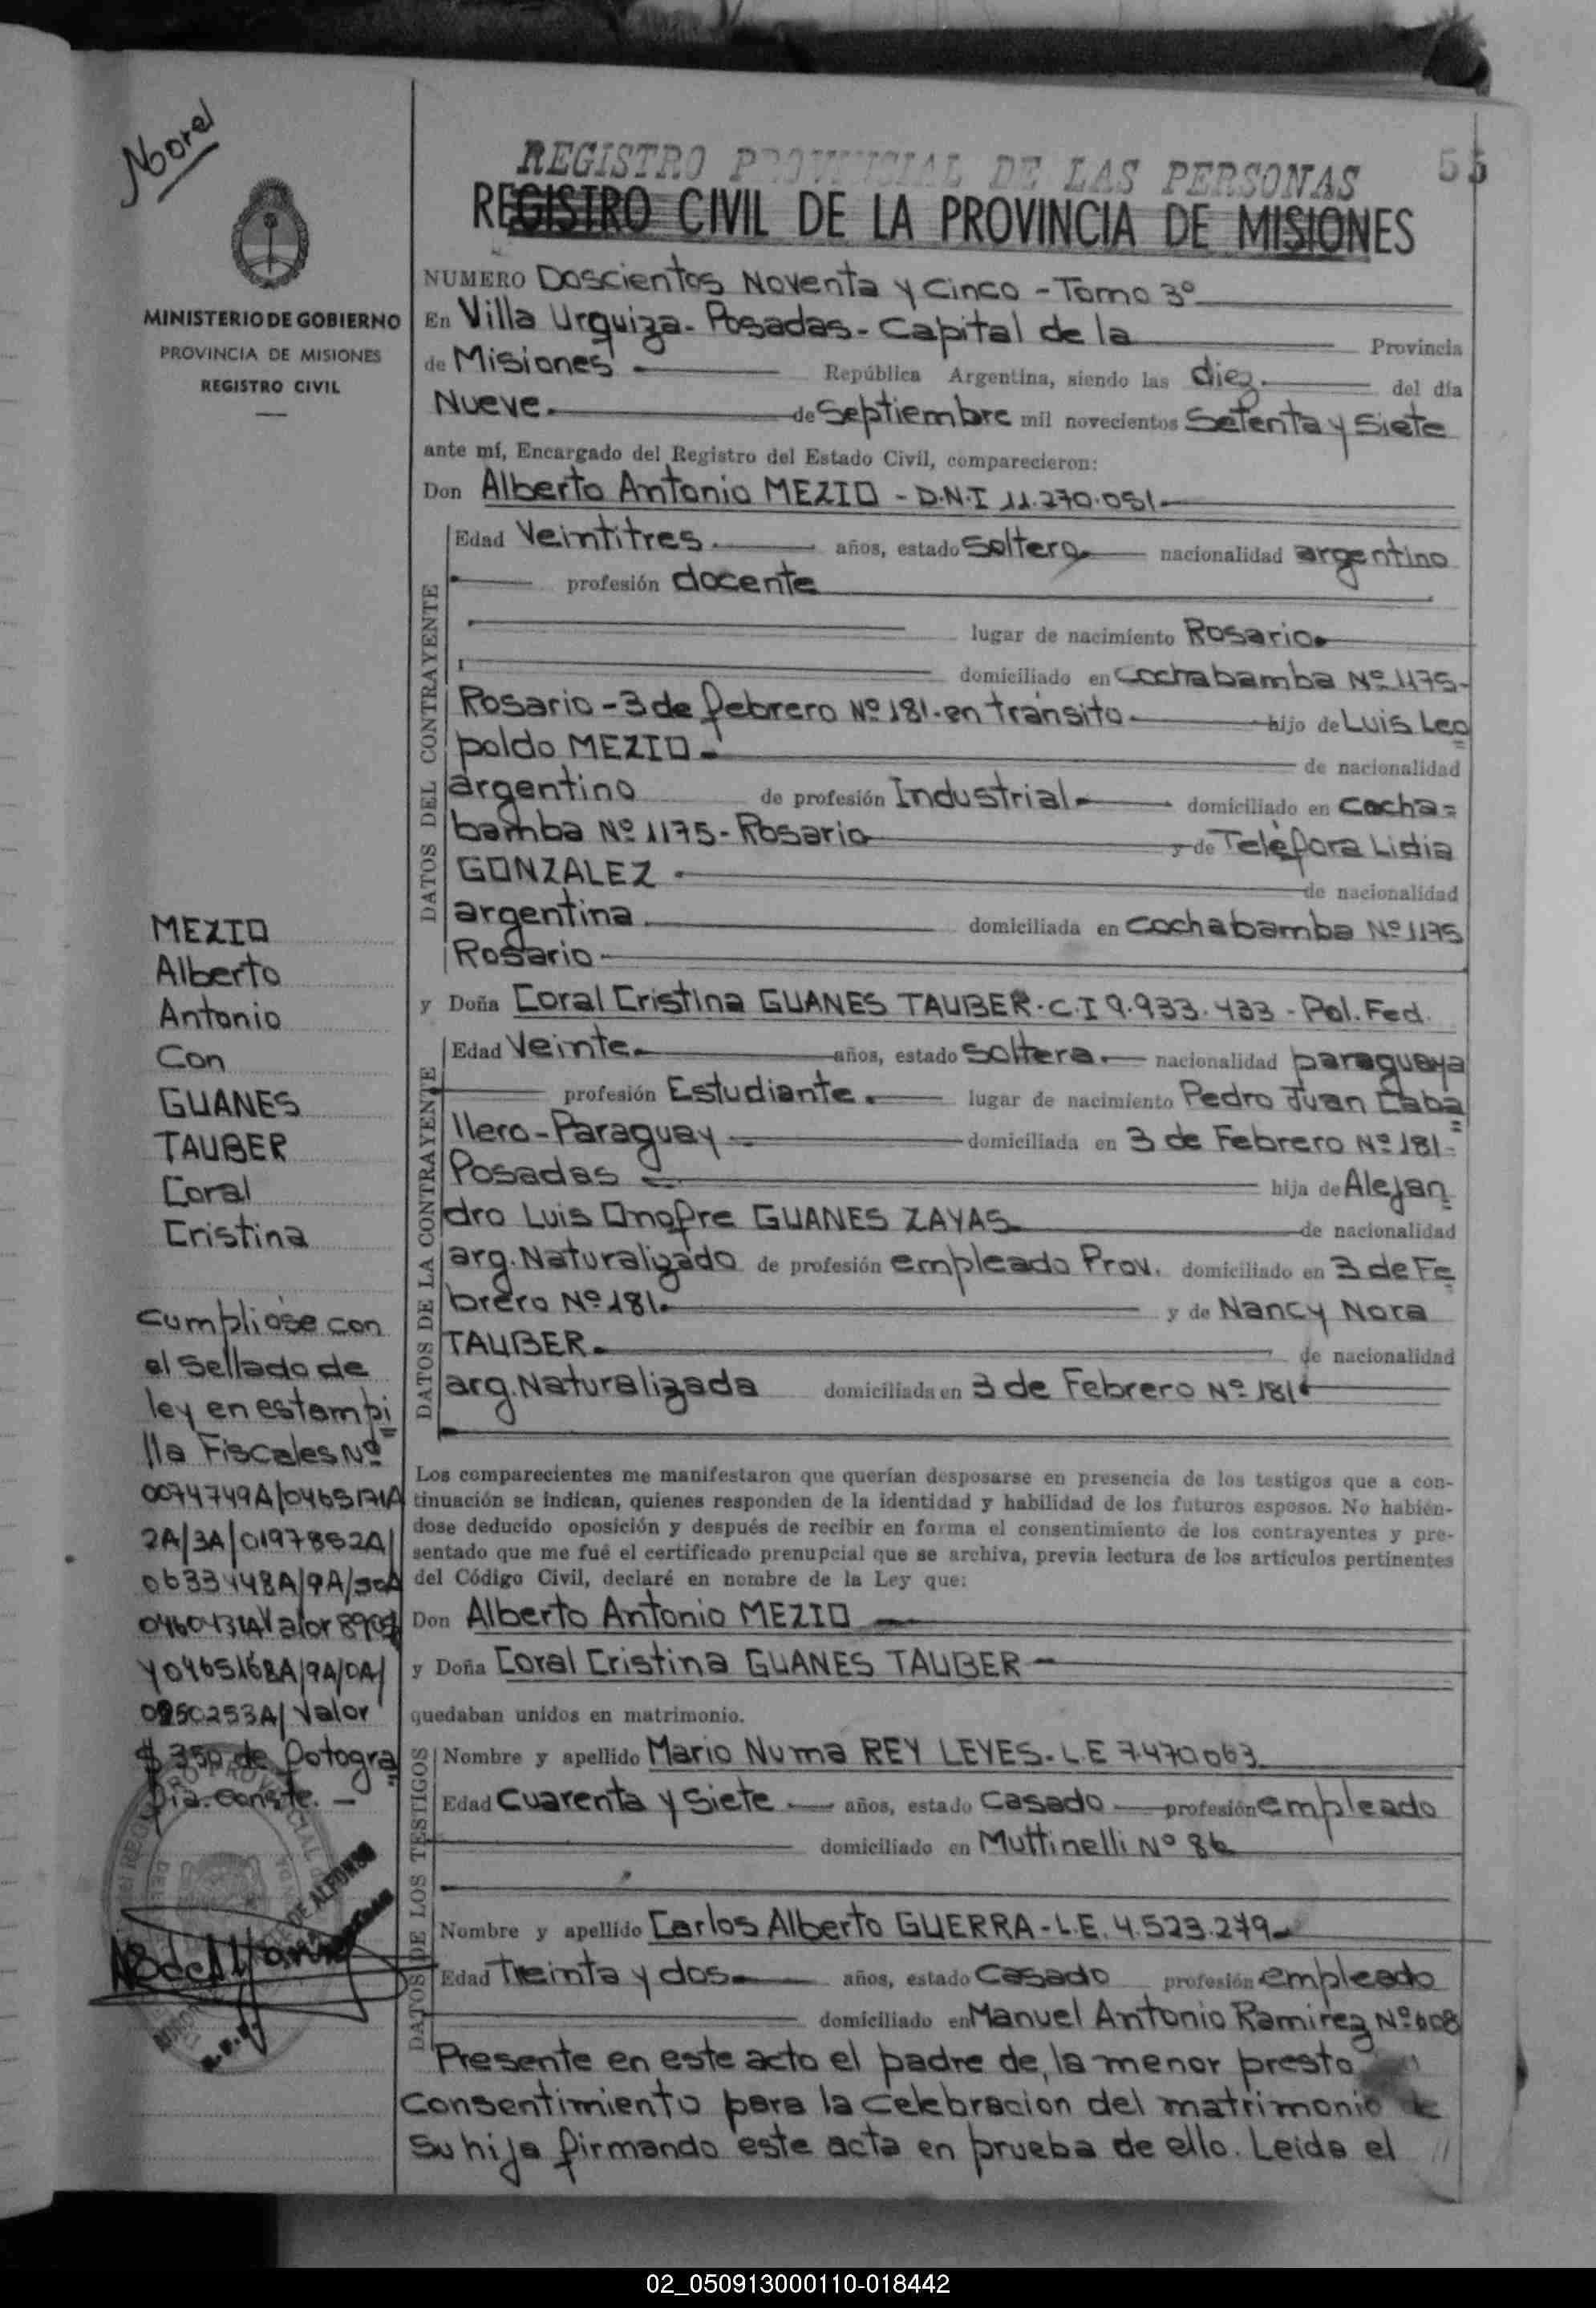 Norel
MINISTERIO DE GOBIERNO
PROVINCIA DE MISIONES
REGISTRO CIVIL
REGISTRO PROVINCIAL DE LAS PERSONAS
REGISTRO CIVIL DE LA PROVINCIA DE MISIONES
NUMERO Doscientos Noventa y Cinco - Tomo 3º
En Villa Urquiza - Posadas - Capital de la Provincia
de Misiones República Argentina, siendo las diez del día
Nueve. de Septiembre mil novecientos Setenta y Siete
ante mí, Encargado del Registro del Estado Civil, comparecieron:
Don Alberto Antonio MEZIO - D.N.I 11.270.051
DATOS DEL CONTRAYENTE
Edad Veintitres años, estado Soltero nacionalidad argentino
profesión docente
lugar de nacimiento Rosario
domiciliado en Cochabamba Nº 1175-
Rosario - 3 de febrero Nº 181 - en tránsito hijo de Luis Leo
poldo MEZIO de nacionalidad
argentino de profesión Industrial domiciliado en Cocha=
bamba Nº 1175 - Rosario y de Teléfora Lidia
GONZALEZ de nacionalidad
argentina domiciliada en Cochabamba Nº 1175
Rosario
y Doña Coral Cristina GUANES TAUBER - C.I 9.933.433 - Pol. Fed.
DATOS DE LA CONTRAYENTE
Edad Veinte años, estado Soltera nacionalidad paraguaya
profesión Estudiante lugar de nacimiento Pedro Juan Caba
llero - Paraguay domiciliada en 3 de Febrero Nº 181-
Posadas hija de Alejan
dro Luis Onofre GUANES ZAYAS de nacionalidad
arg. Naturalizado de profesión empleado Prov. domiciliado en 3 de Fe
brero Nº 181. y de Nancy Nora
TAUBER de nacionalidad
arg. Naturalizada domiciliada en 3 de Febrero Nº 181
Los comparecientes me manifestaron que querían desposarse en presencia de los testigos que a con-
tinuación se indican, quienes responden de la identidad y habilidad de los futuros esposos. No habién-
dose deducido oposición y después de recibir en forma el consentimiento de los contrayentes y pre-
sentado que me fué el certificado prenupcial que se archiva, previa lectura de los artículos pertinentes
del Código Civil, declaré en nombre de la Ley que:
Don Alberto Antonio MEZIO
y Doña Coral Cristina GUANES TAUBER
quedaban unidos en matrimonio.
DATOS DE LOS TESTIGOS
Nombre y apellido Mario Numa REY LEYES - L.E 7.470.063
Edad Cuarenta y Siete años, estado Casado profesión empleado
domiciliado en Muttinelli Nº 86
Nombre y apellido Carlos Alberto GUERRA - L.E. 4.523.279
Edad Treinta y dos años, estado Casado profesión empleado
domiciliado en Manuel Antonio Ramirez Nº 608
Presente en este acto el padre de la menor presto
Consentimiento para la celebracion del matrimonio de
Su hija firmando este acta en prueba de ello. Leida el //
MEZIO
Alberto
Antonio
Con
GUANES
TAUBER
Coral
Cristina
Cumplióse con
el Sellado de
ley en estampi
lla Fiscales Nº
0074749A/0465171A
2A/3A/0197852A/
0633448A/9A/50A
0460431A Valor
y 0465168A/9A/0A/
0250253A/ Valor
$ 350 de fotogra
fia. Conste. -
DE ALFONSO
02_050913000110-018442